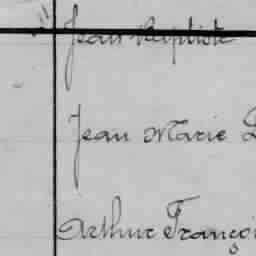 Jean Baptiste
Jean Marie
Arthur Françoi